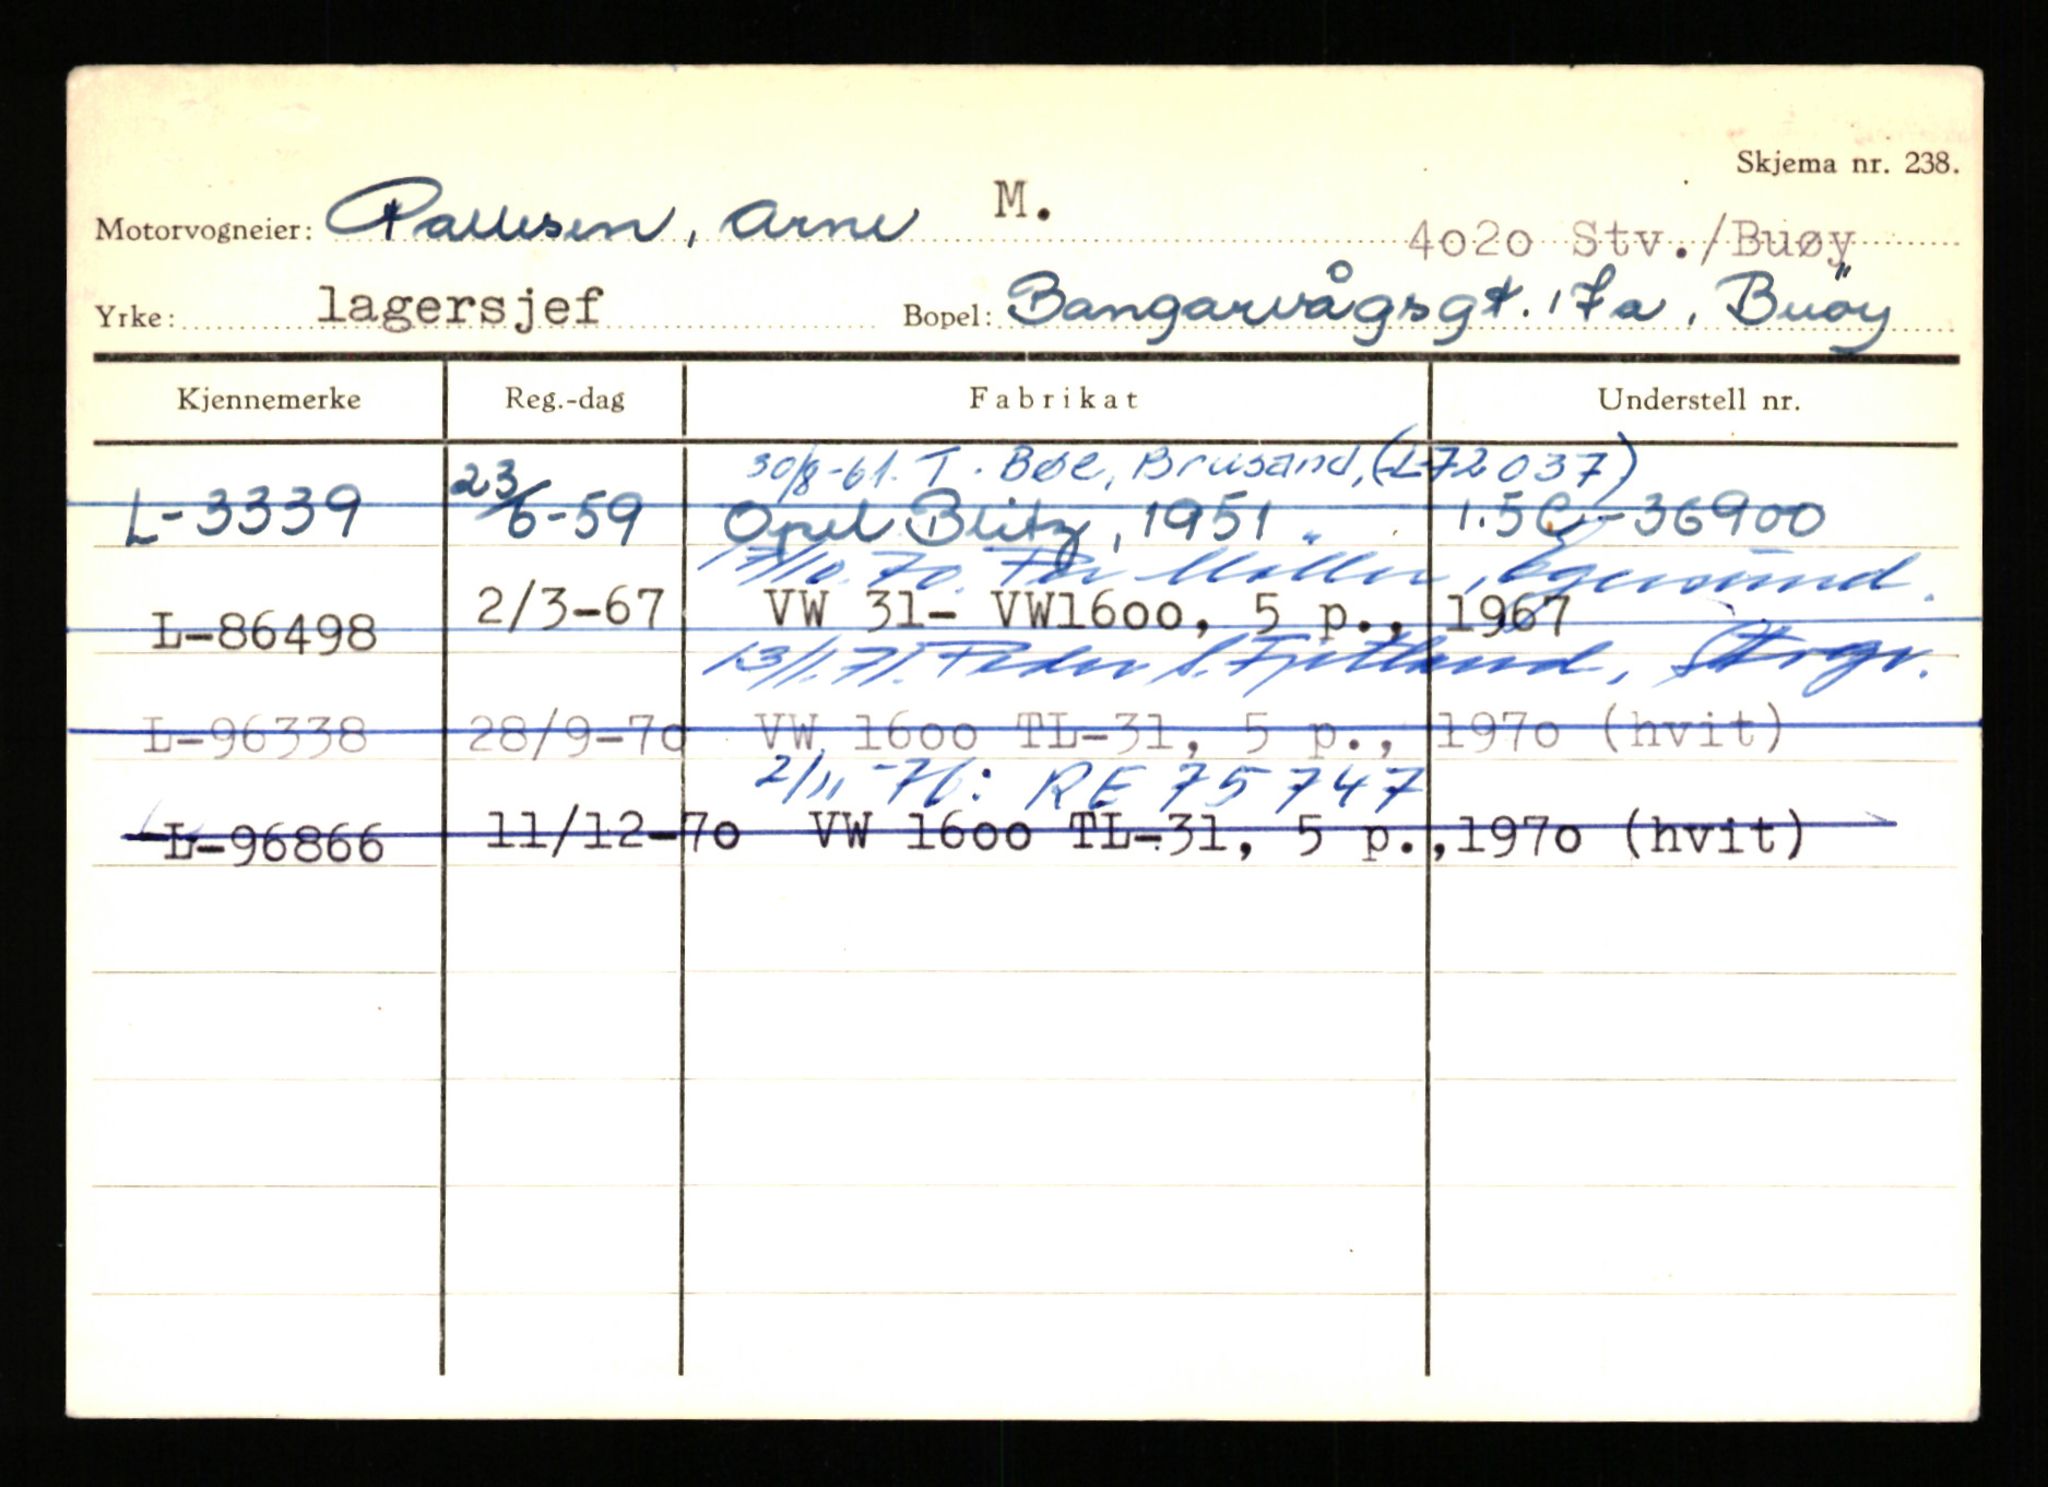 Skjema nr. 238.
Motorvogneier: Pallesen, Arne M.
4020 Stv./Buøy
Yrke: lagersjef Bopel: Bangarvågsgt. 17a, Buöy
Kjennemerke Reg.-dag Fabrikat Understell nr.
30/8-61. T. Bøe, Brusand, (L-72037)
L-3339 23/6-59 Opel Blitz, 1951 1.5C-36900
17/10.70. Per Møller, Egersund.
L-86498 2/3-67 VW 31- VW1600, 5 p., 1967
13/1.71. Peder S. Fjetland,
L-96338 28/9-70 VW 1600 TL-31, 5 p., 1970 (hvit)
2/11-76: RE 75747
L-96866 11/12-70 VW 1600 TL-31, 5 p., 1970 (hvit)